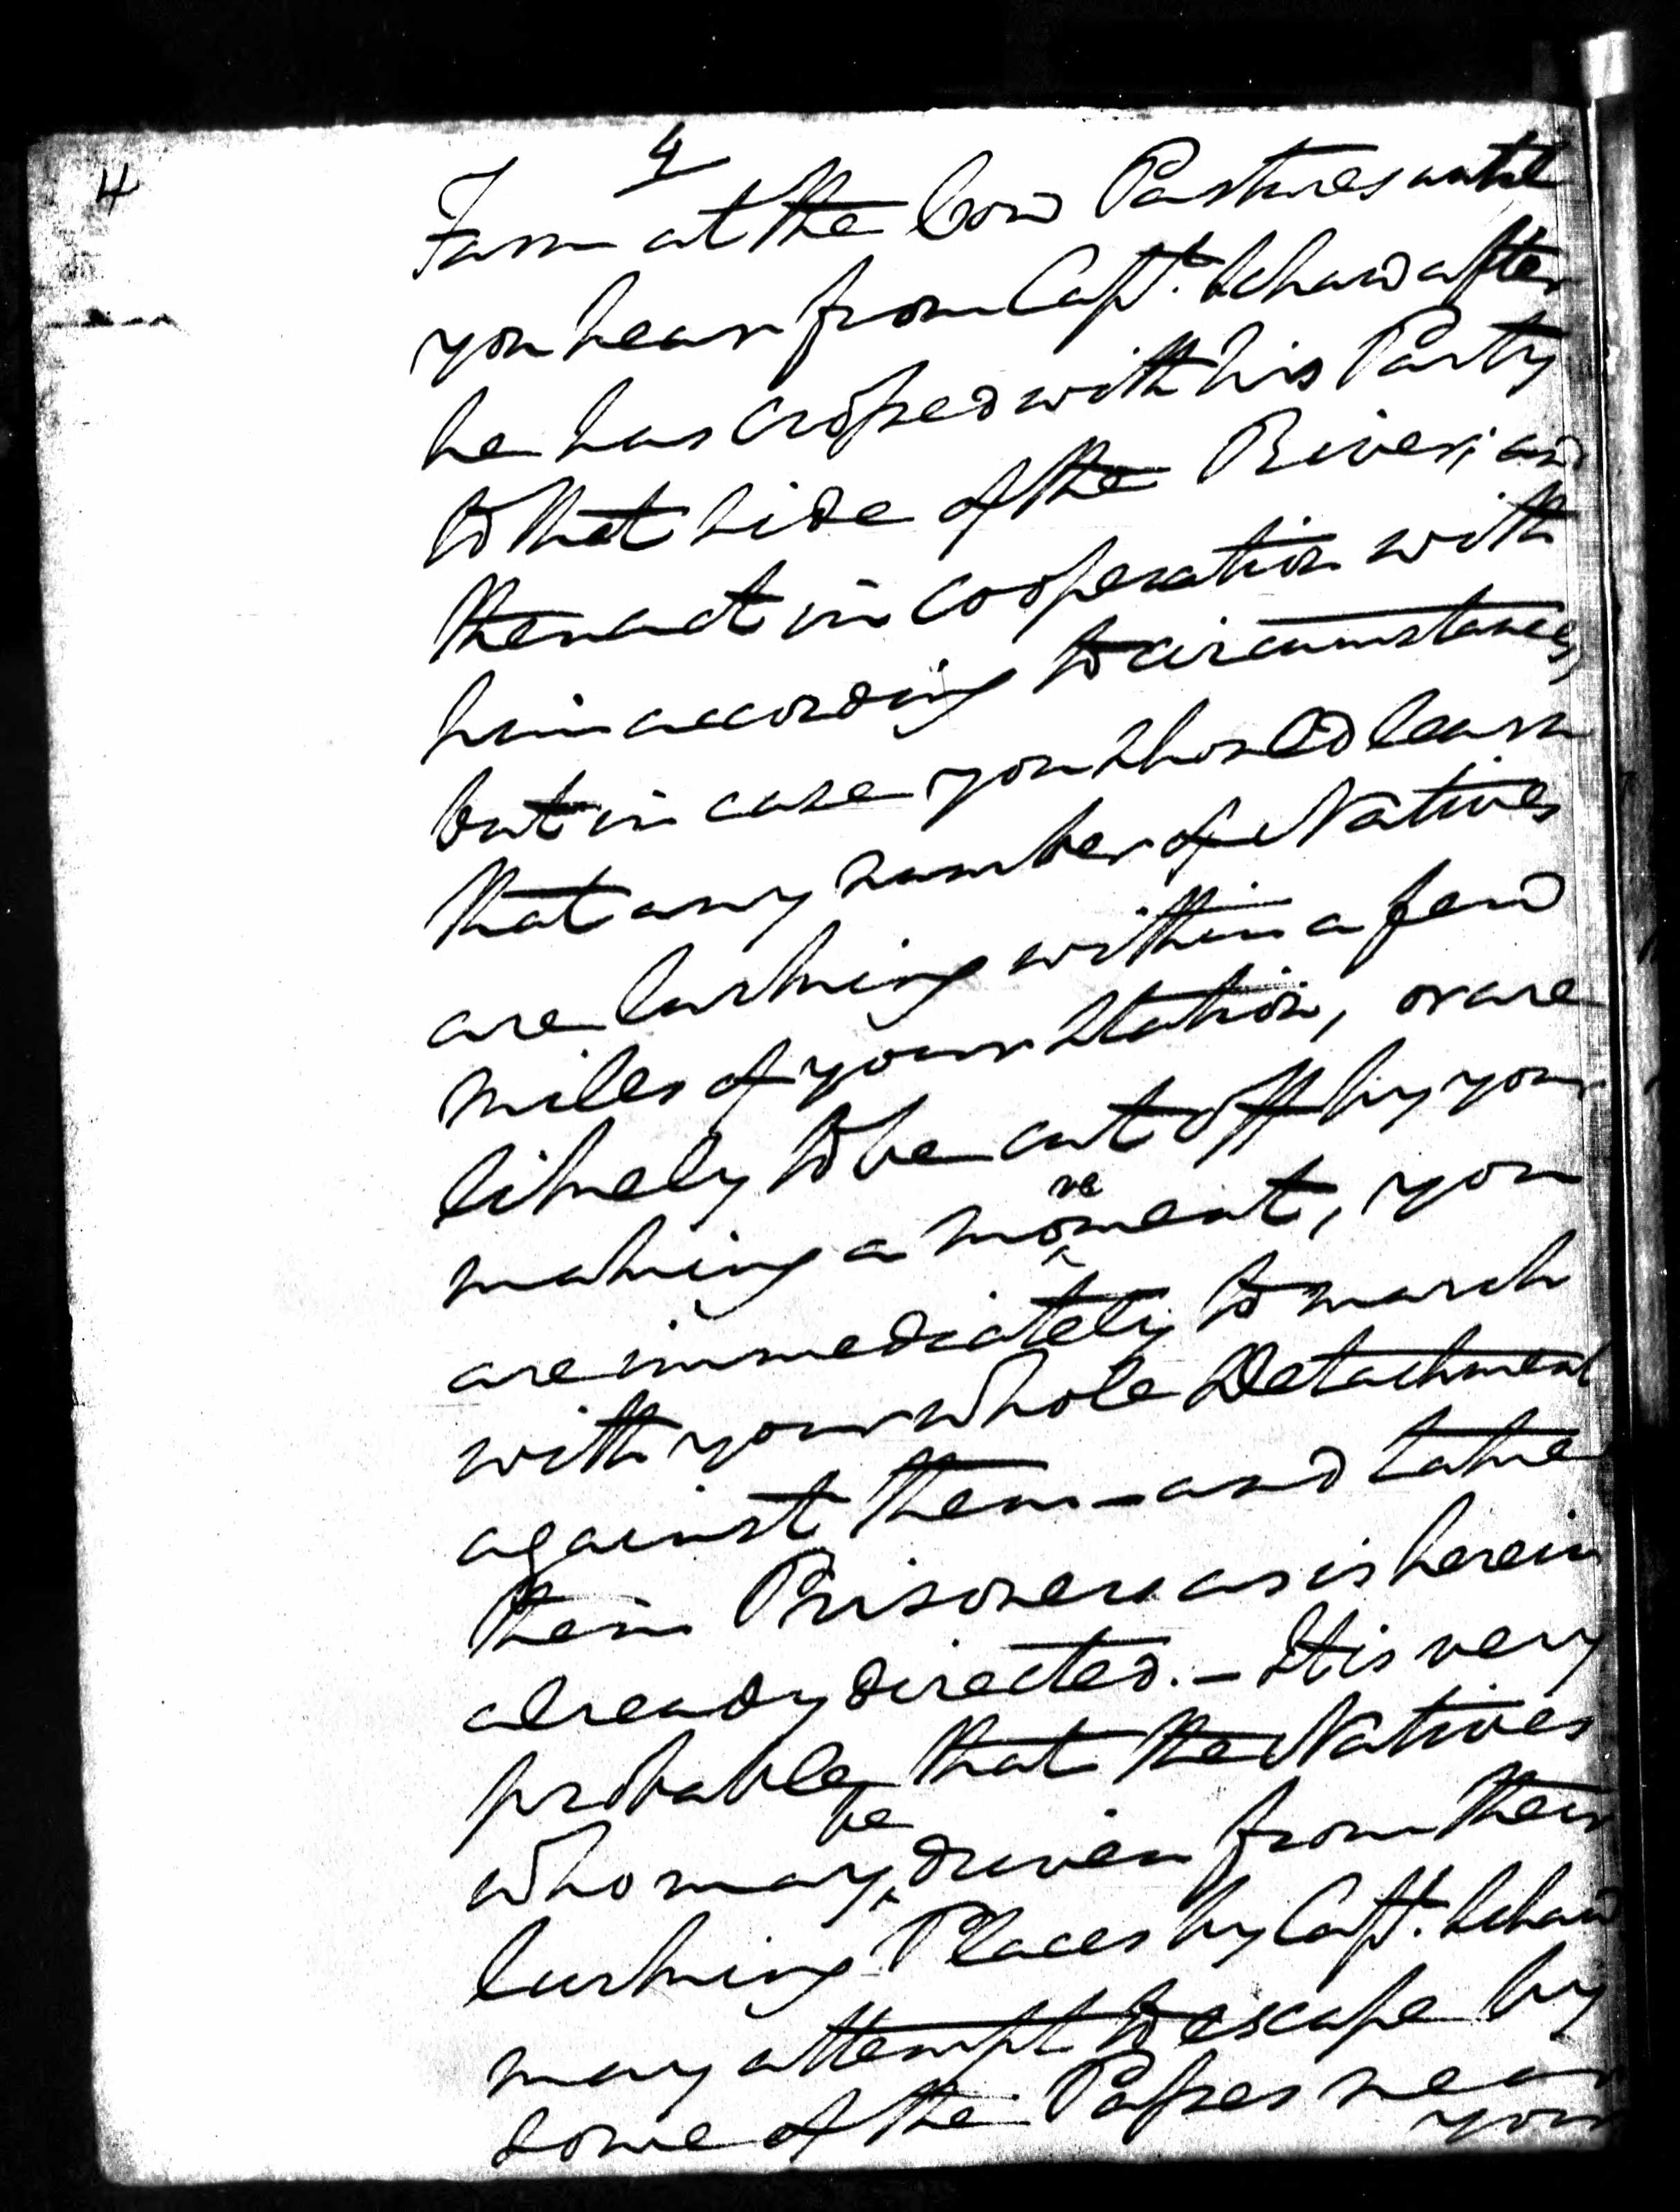 4
4
Farm at the Cow Pastures until
you hear from Capt. Schaw after
he has crossed with his Party
to that side of the River; and
then act in cooperation with
him according to circumstances,
but in case you should learn
that any number of Natives
are lurking within a few
miles of your Station, or are
likely to be cut off by your
making a movement, you
are immediately to march
with your whole Detachment
against them – and take
them Prisoners as is herein
already directed. – It is very
probable that the Natives
who may be driven from their
lurking Places by Capt. Schaw
may attempt to escape by
some of the Passes near
your